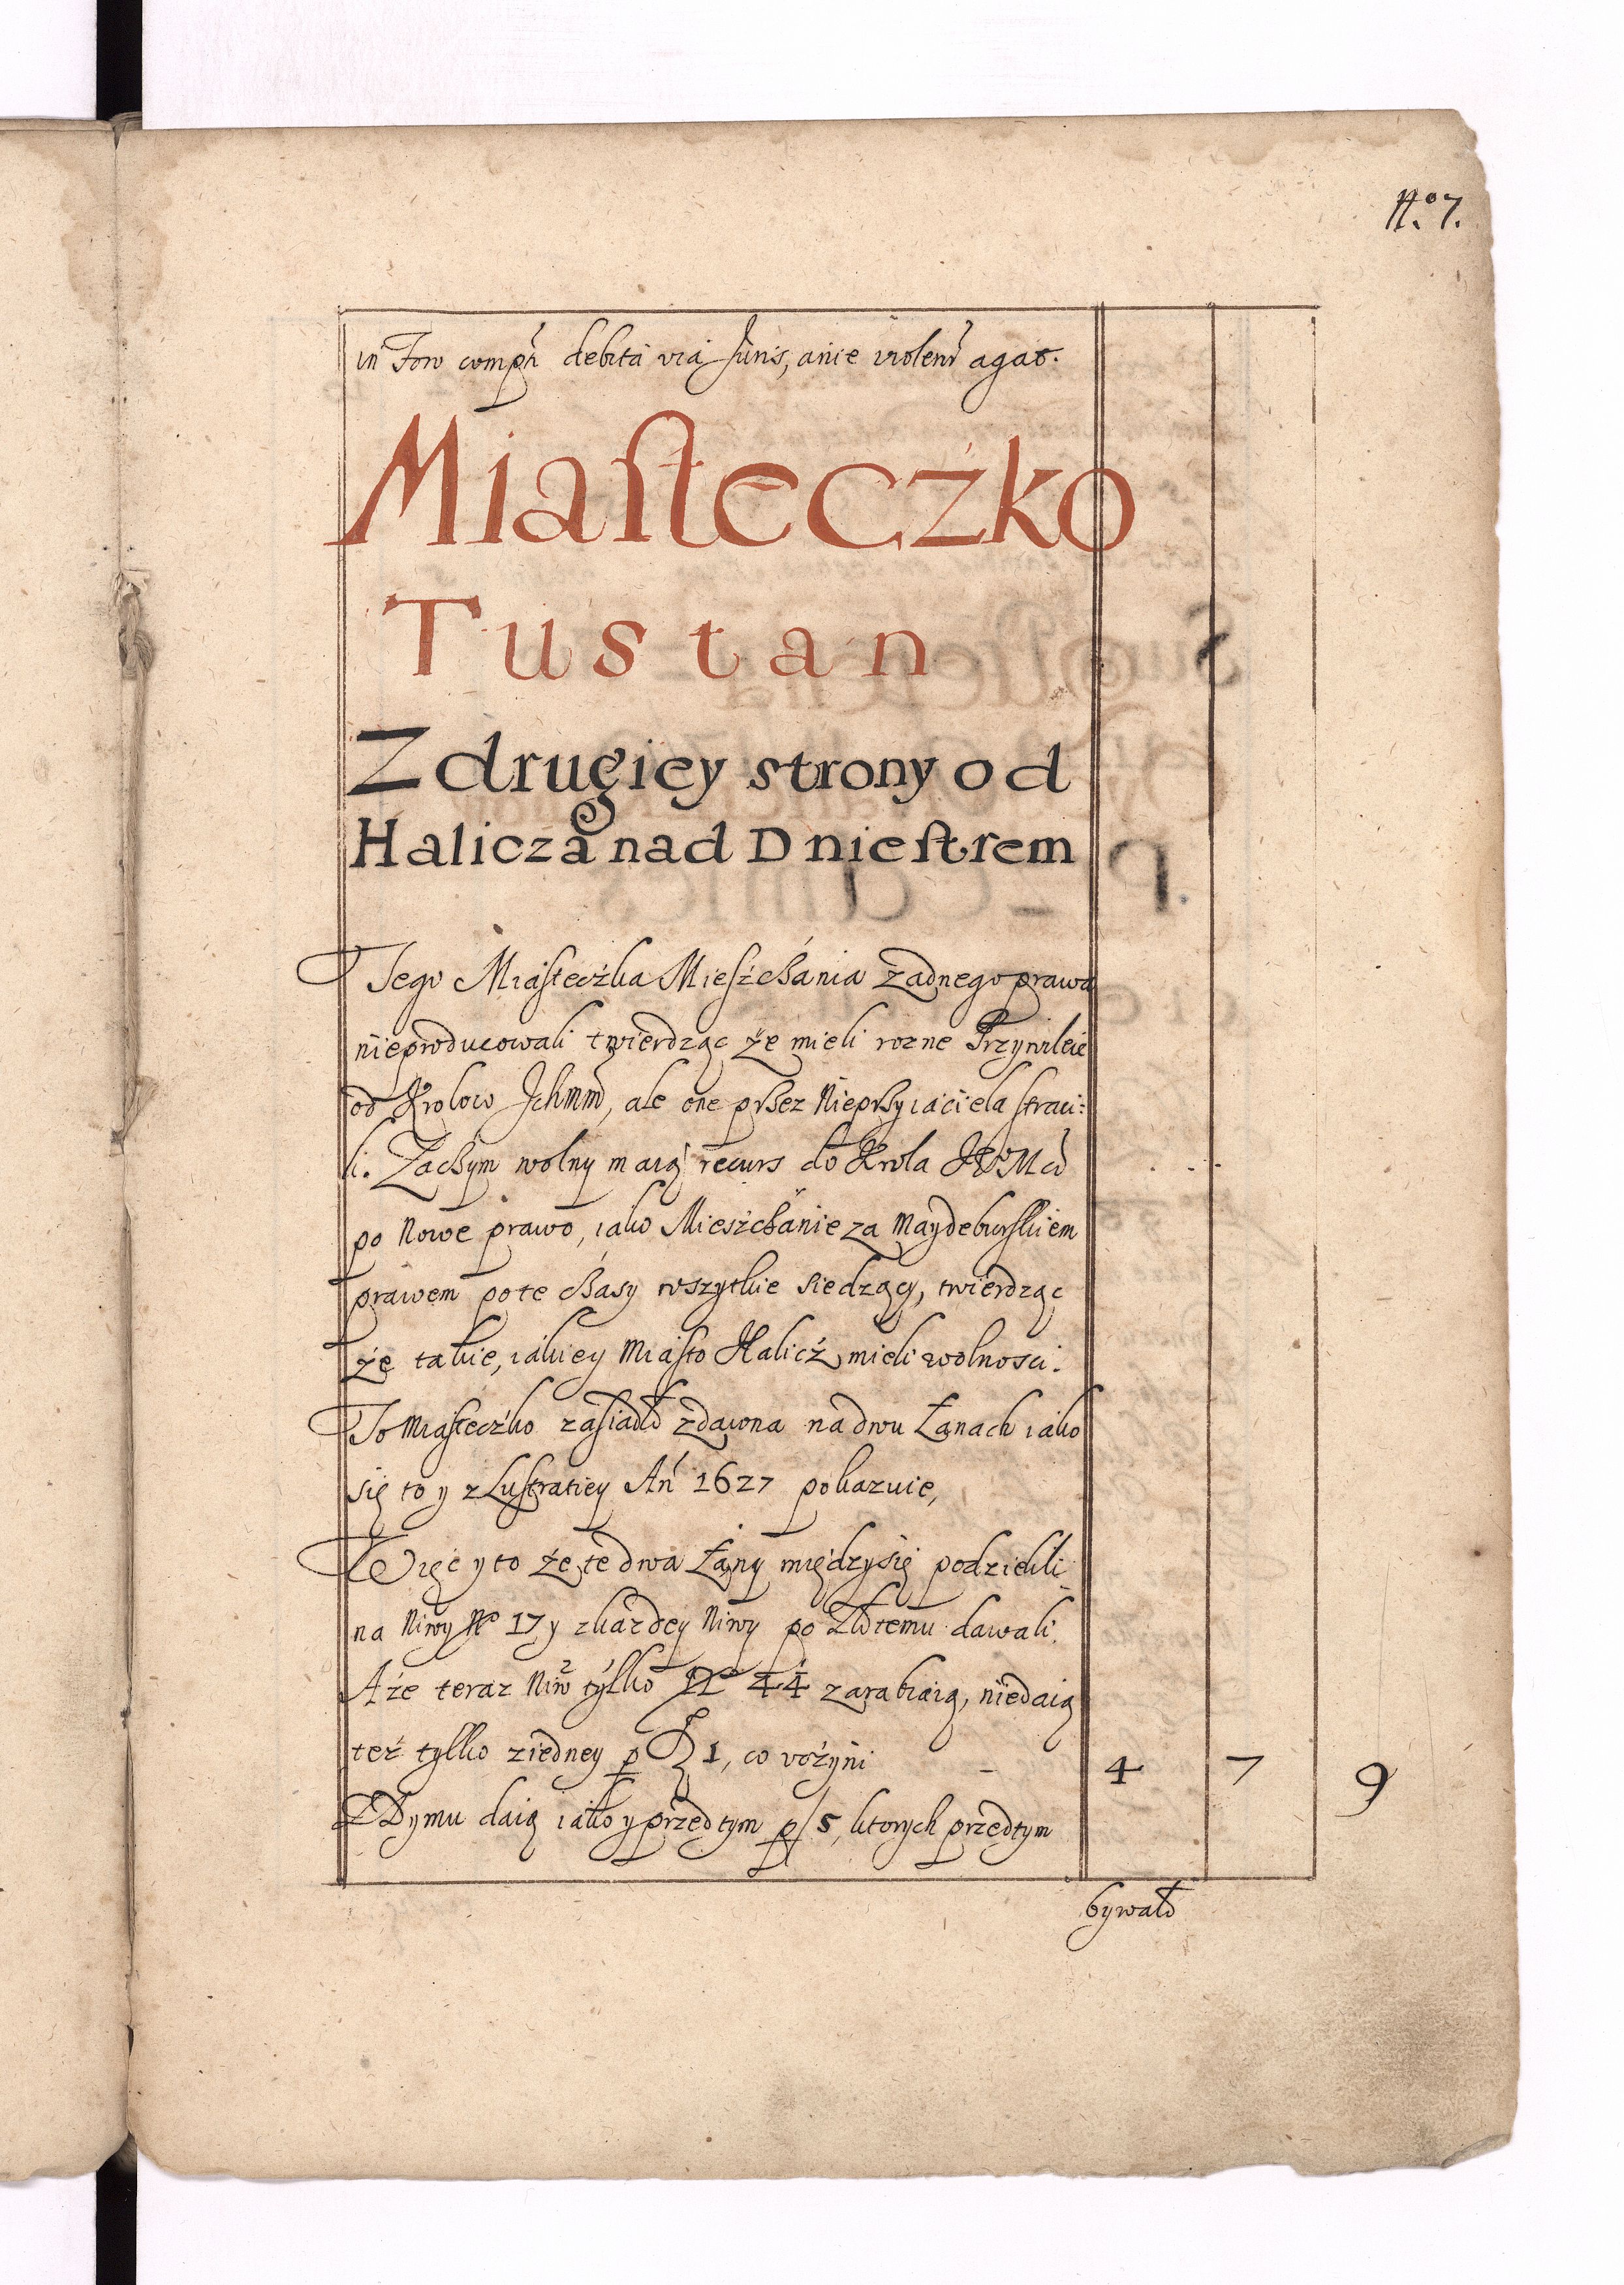 No. 7.
in Foro compti debita via Juris, a nie violentr agat.
Miasteczko
Tustan
Z drugiey strony od
Halicza nad Dniestrem
Tego Miasteczka Mieszczania żadnego prawa
nieproducowali twierdząc że mieli rozne Przywileie
od Krolow Ichmm, ale one przez Nieprzyiaciela straci:
li. Zaczym wolny maią recurs do Krola JKoMci
po Nowe prawo, iako Mieszczanie za Maydeburskiem
prawem po te czasy wszytkie siedzący, twierdząc
że takie, iakiey Miasto Halicz, mieli wolnosci.
To Miasteczko zasiadło zdawna na dwu Łanach iako
się to y z Lustratiey Añ 1627 pokazuie,
Więc y to że te dwa Łany między się podzielili
na Niwy No 17 y z kazdey Niwy po Złotemu dawali.
A że teraz Niw tylko No 4 4 zarabiaią, niedaią
też tylko z iedney p 1, co vczyni - 4 7 9
Z Dymu daią iako y przedtym p / 5, ktorych przedtym
bywało